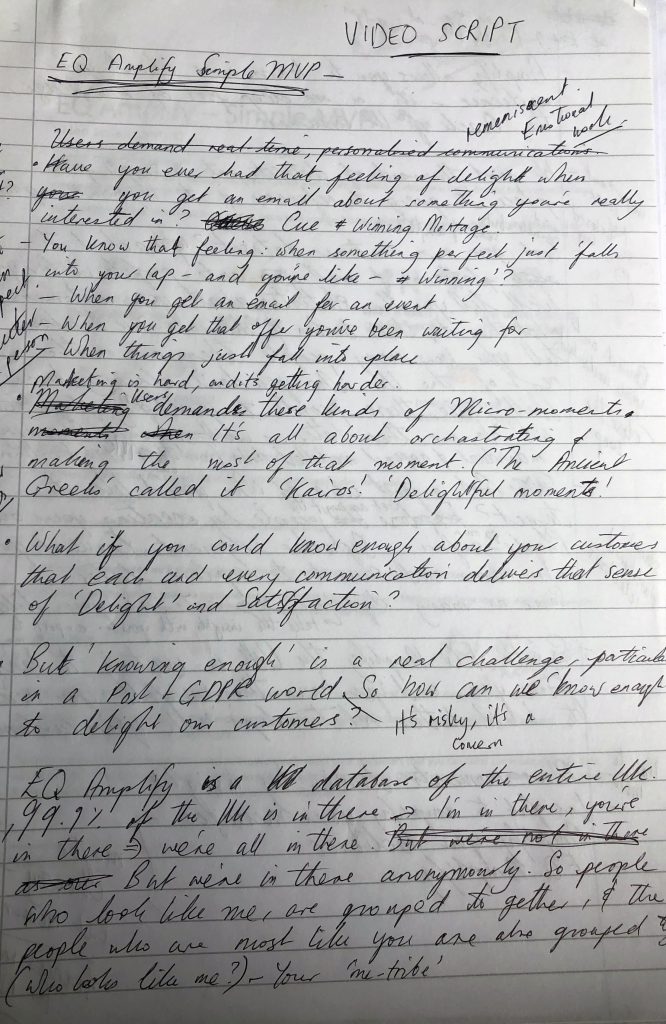 VIDEO SCRIPT
EQ Amplify Simple MVP –
remeniscent.
Emotional
work.
Users demand real time, personalised communications.
• Have you ever had that feeling of delight when
your you get an email about something you're really
interested in? Cue # Winning Montage.
– You know that feeling: when something perfect just 'falls
into your lap – and you're like – # Winning'?
– When you get an email for an event
– When you get that offer you've been waiting for
– When things just fall into place
Marketing is hard, and it's getting harder.
• Marketing Users demands these kinds of Micro-moments.
moments when It's all about orchastrating &
making the most of that moment. (The Ancient
Greeks called it 'Kairos'. 'Delightful moments'.
• What if you could know enough about your customers
that each and every communication delivers that sense
of 'Delight' and Satisfaction?
• But 'knowing enough' is a real challenge, particula
in a Post-GDPR world. So how can we 'know enough
to delight our customers? It's risky, it's a
concern
EQ Amplify is a database of the entire UK.
99.9% of the UK is in there → I'm in there, you're
in there → we're all in there. But we're not in there
as our But we're in there anonymously. So people
who look like me, are grouped to gether, & the
people who are most like you are also grouped
(who looks like me?) – Your 'me-tribe'